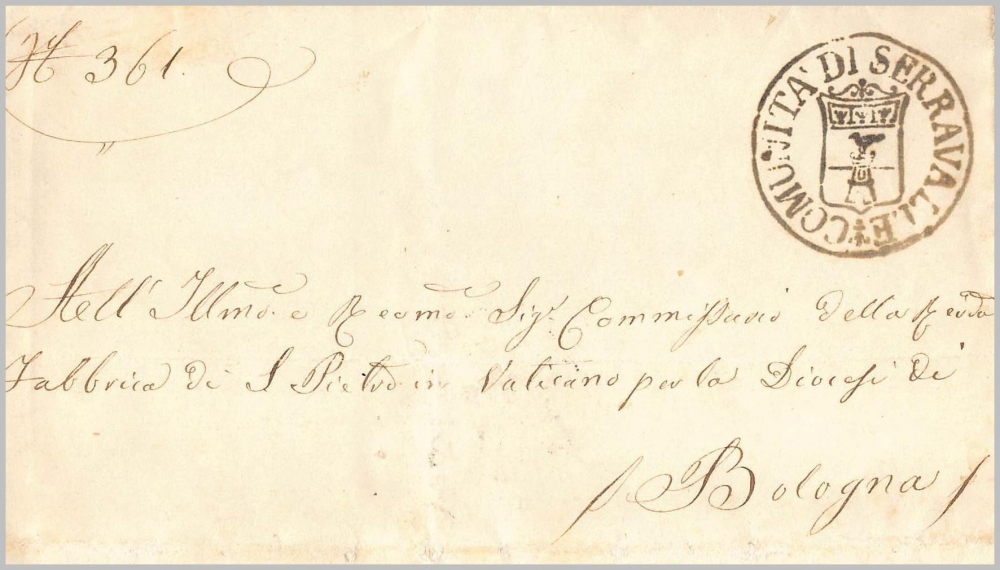 N 361.
COMUNITA' DI SERRAVALLE
All' Illmo. e Revmo. Sigr. Commissario della Revda
Fabbrica di S Pietro in Vaticano per la Diocesi di
Bologna